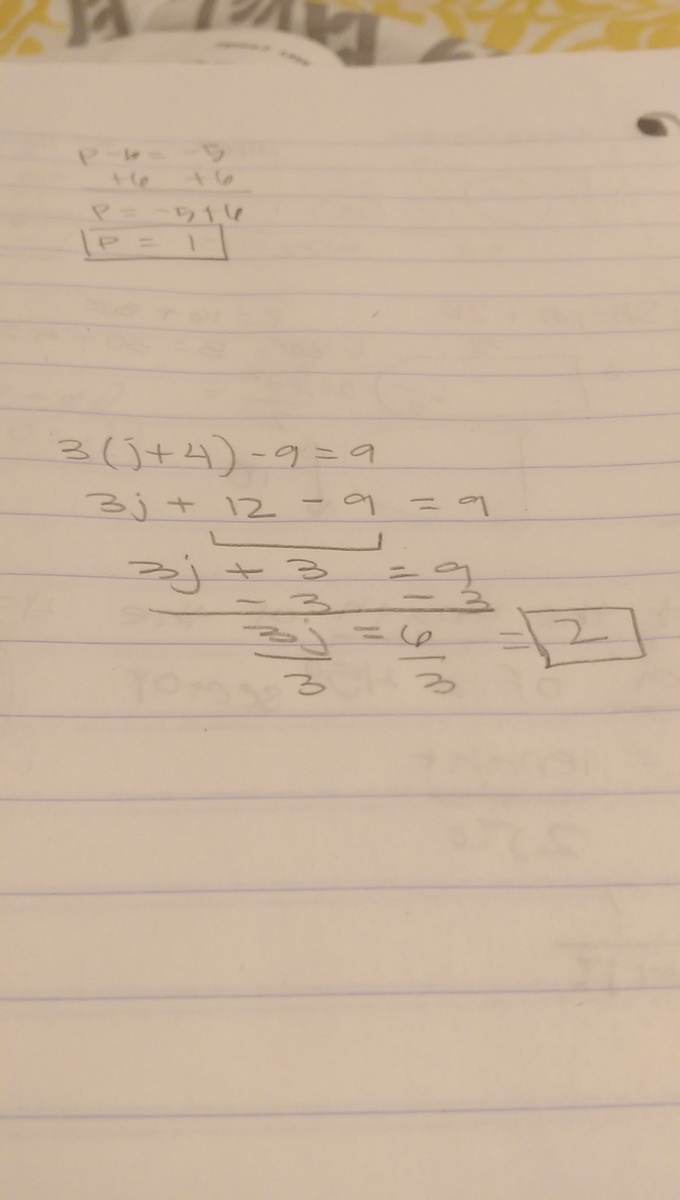 P - 6 = -5
+6 +6
P = -5+6
P = 1
3(j+4)-9=9
3j + 12 - 9 = 9
3j + 3 = 9
- 3 - 3
3j = 6 = 2
3 3